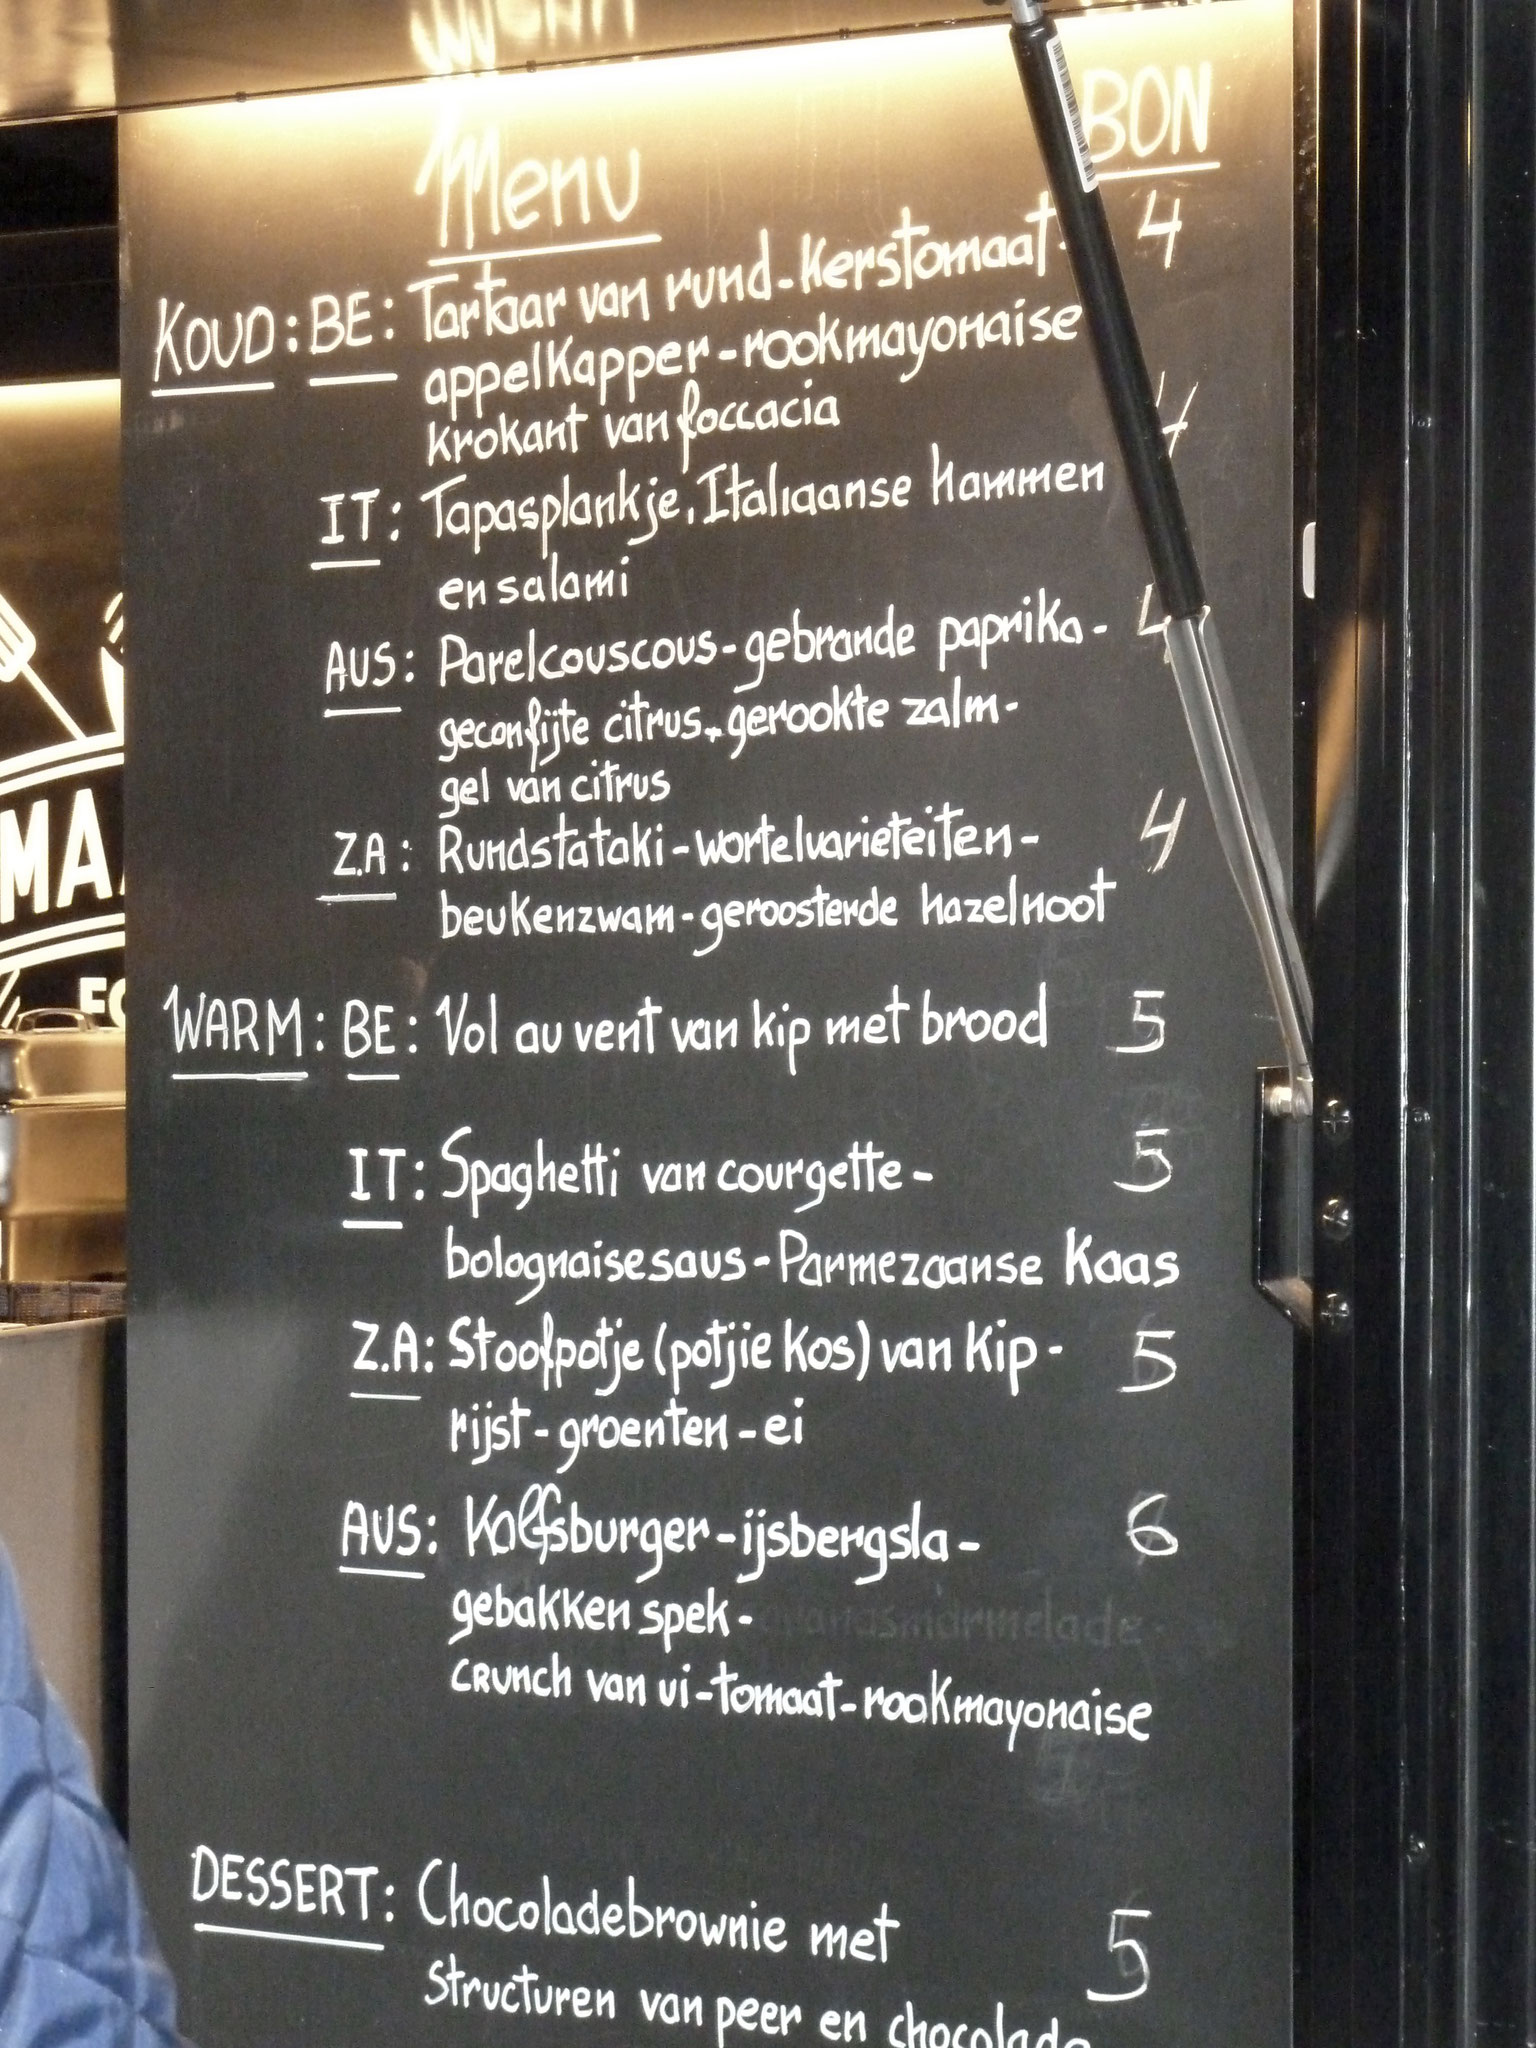 Menu BON
KOUD: BE: Tartaar van rund-kerstomaat- 4
appelkapper-rookmayonaise
krokant van foccacia
IT: Tapasplankje, Italiaanse hammen 4
en salami
AUS: Parelcouscous-gebrande paprika- 4
geconfijte citrus-gerookte zalm-
gel van citrus
Z.A: Rundstataki-wortelvarieteiten- 4
beukenzwam-geroosterde hazelnoot
WARM: BE: Vol au vent van kip met brood 5
IT: Spaghetti van courgette- 5
bolognaisesaus-Parmezaanse Kaas
Z.A: Stoofpotje (potjie kos) van kip- 5
rijst-groenten-ei
AUS: Kalfsburger-ijsbergsla- 6
gebakken spek-
crunch van ui-tomaat-rookmayonaise
DESSERT: Chocoladebrownie met 5
structuren van peer en chocolade
MA